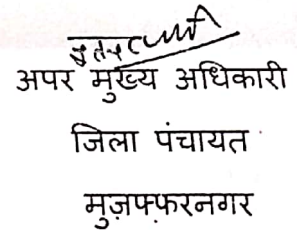 अपर मुख्य अधिकारी
जिला पंचायत
मुज़फ्फरनगर